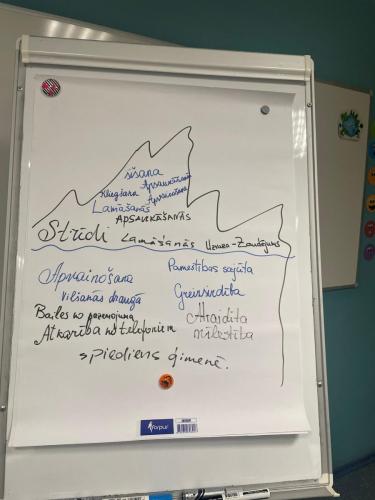 sišana
Kliegšana Apsaukāšana
Lamāšanās Apvainošana
APSAUKĀŠANĀS
Strīdi Lamāšanās Uzvara-Zaudējums
Apvainošana Pamestības sajūta
vilšanās draugā Greizsirdība
Bailes no pazemojuma Atraidīta
Atkarība no telefoniem mīlestība
spiediens ģimenē.
forpus